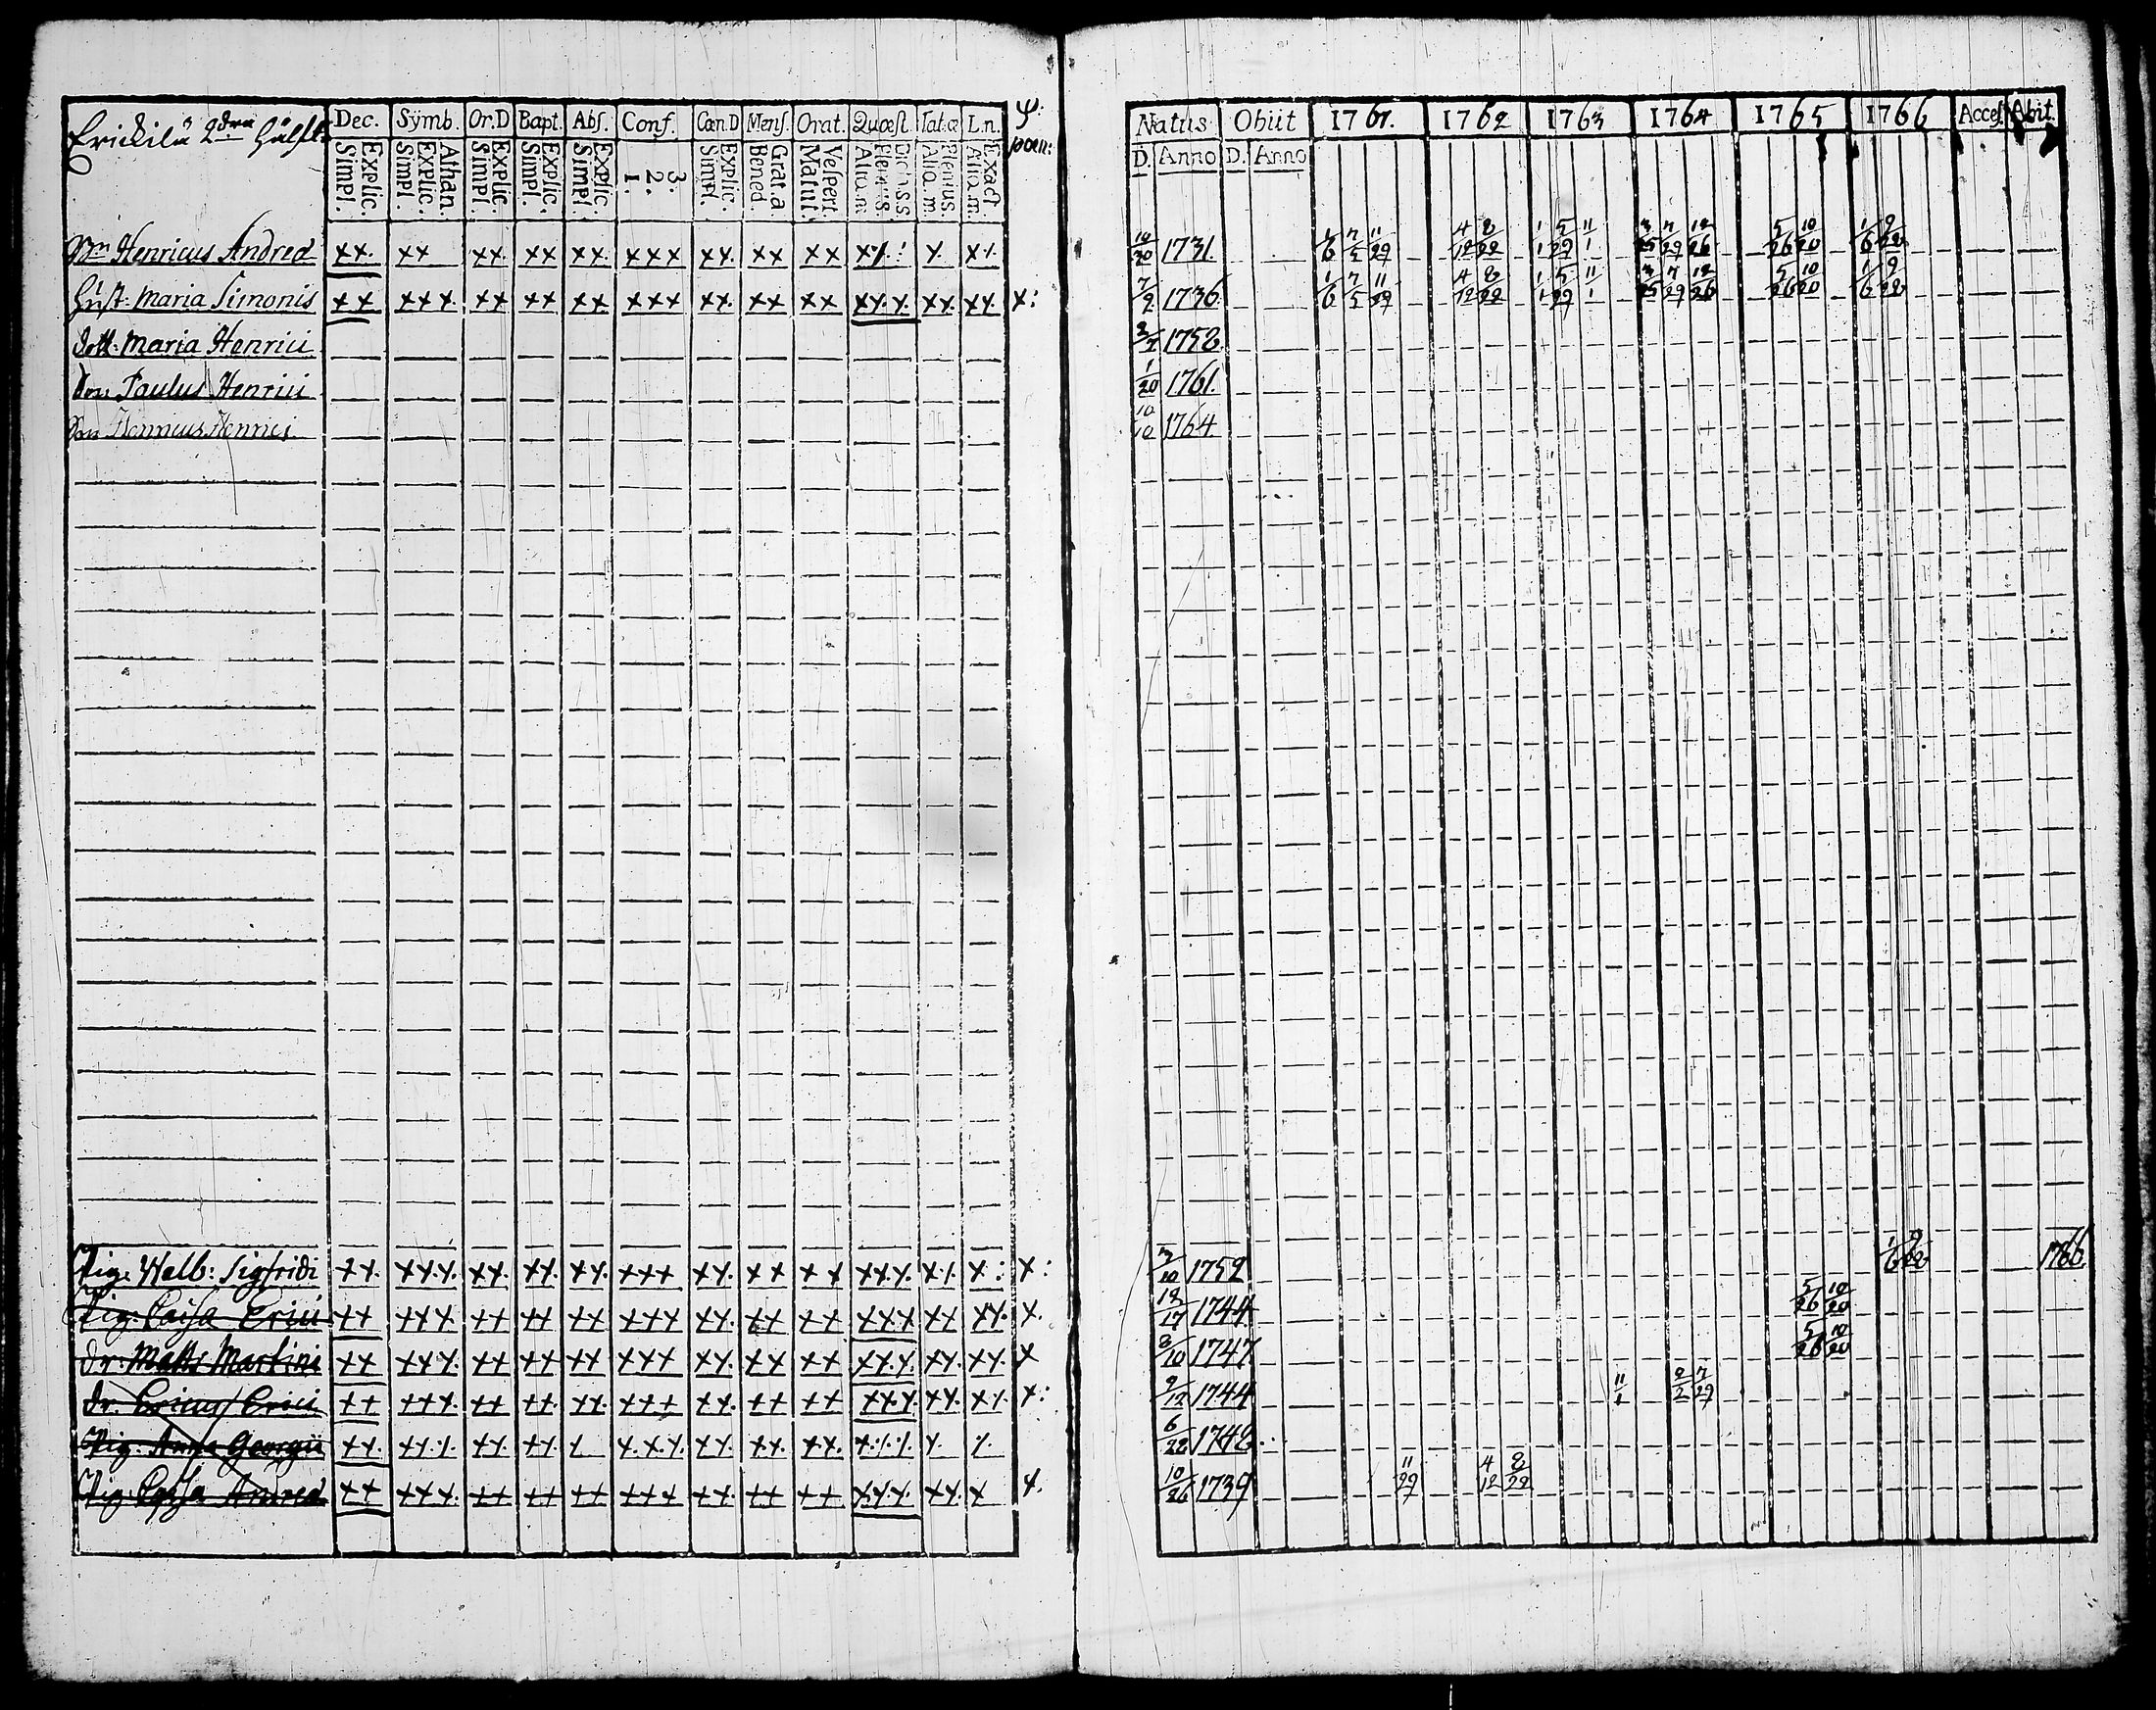 Erickilä 2dra hälft.
Dec. Symb. Or.D Bapt. Abſ. Conf. Cœn.D Menſ. Orat. Quæſt. Tab.æ L.n. ψ: poen:
Explic. Simpl. Athan. Explic. Simpl. Explic. Simpl. Explic. Simpl. Explic. Simpl. 3. 2. 1. Explic. Simpl. Grat.a Bened. Veſpert. Matut. Plenius. Alia.m. Plenius. Alia.m. Exact. Alia.m.
Natus Obiit 1761. 1762 1763 1764 1765 1766 Acceſ. Abit.
D. Anno D. Anno
Bn Henricus Andreæ xx. xx xx. xx xx. xxx xx. xx xx x 10/20 1731. 1/6 7/5 11/29 4/12 8/22 1/1 5/29 11/1 3/25 7/29 12/26 5/26 10/20 1/6 9/28
Huſt: Maria Simonis xx xxx. xx xx xx xxx xx. xx xx xx.x. xx. xx. x: 7/2 1736. 1/6 7/5 11/29 4/12 8/22 1/1 5/29 11/1 3/25 7/29 12/26 5/26 10/20 1/6 9/28
dott: Maria Henrici 1758
Son Paulus Henrici 1/20 1761.
Son Henricus Henrici 10/10 1764.
Pig: Walb: Sigfridi xx. xx.x. xx. xx. xx. xxx xx. xx xx xx.x. x: x: 1752 1766.
Pig: Caisa Erici xx xxx. xx xx xx xxx xx. xx xx xxx xx xx. x. 12/17 1744 5/26 10/20
dr: Matts Martini xx xxx. xx xx xx xxx xx. xx xx xx.x. xx. xx. x 8/10 1747. 5/26 10/20
dr: Ericus Erici xx xxx. xx xx. xx. xxx xx. xx xx xx.x. xx. xx. x: 9/12 1744 11/1 2/2 7/29
Pig: Anna Georgii xx. xx. xx. x.x.x. xx. xx. xx. 6/22 1748.
Pig: Caisa Andreæ xx xxx. xx xx xx xxx xx. xx xx xx.x. xx. x x. 10/26 1739 11/29 4/12 8/22